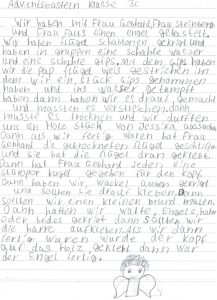 Adventsbasteln Klasse 3c
Wir haben mit Frau Gebhard, Frau steinberg
und Frau Puts einen engel gebastelt.
Wir haben flügel schablonen gekrigt und
haben in grupen eine schahle wasser
und eine schahle gips. Mit dem gips haben
wir die pap flügel weis gestrichen in
dem wir ein stück gips genommen
haben und ins wasser getumpft
haben dann haben wir es drauf gemacht
und mussten es verstreichen dann
musste es trocknen und wir durften
uns ein Holz stück von Jessra aussuchen
Dann als wir fertig waren hat Frau
Gebhard die getrockneten flügel geschliffen
und sie hat die flügel dran geklebt.
Dann hat Frau Gebhard jeden eine
stüropor kugel gegeben für den kopf
Dann haben wir wackel augen gekrigt
und sollten sie drauf kleben. Dann
sollten wir einen kleinen mund malen.
Dann hatten wir watte, Engels, haare
oder beides gekrigt dann sollten wir
die harre aufkleben. Als wir dann
fertig waren wurde der kopf
auf das holz geklebt dann war
der Engel fertig.